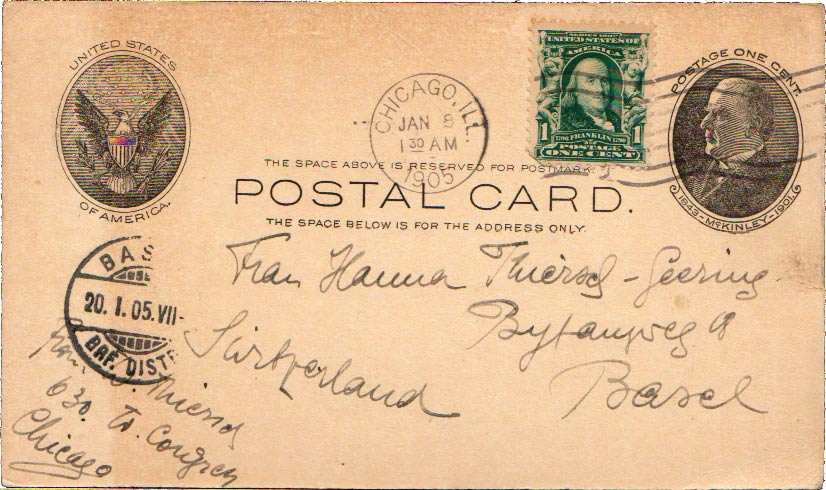 UNITED STATES
OF AMERICA.
CHICAGO, ILL.
JAN 8
1 30 AM
1905
SERIES 1902
UNITED STATES OF
AMERICA
1
1
1706 FRANKLIN 1790
POSTAGE
ONE CENT
POSTAGE ONE CENT.
1843-McKINLEY-1901.
THE SPACE ABOVE IS RESERVED FOR POSTMARK.
POSTAL CARD.
THE SPACE BELOW IS FOR THE ADDRESS ONLY.
BAS
20. I. 05. VII-
BRF. DIST
Frau Hanna Thiersch-Geering
9
Switzerland
Basel
Thiersch
630. W. Congress
Chicago